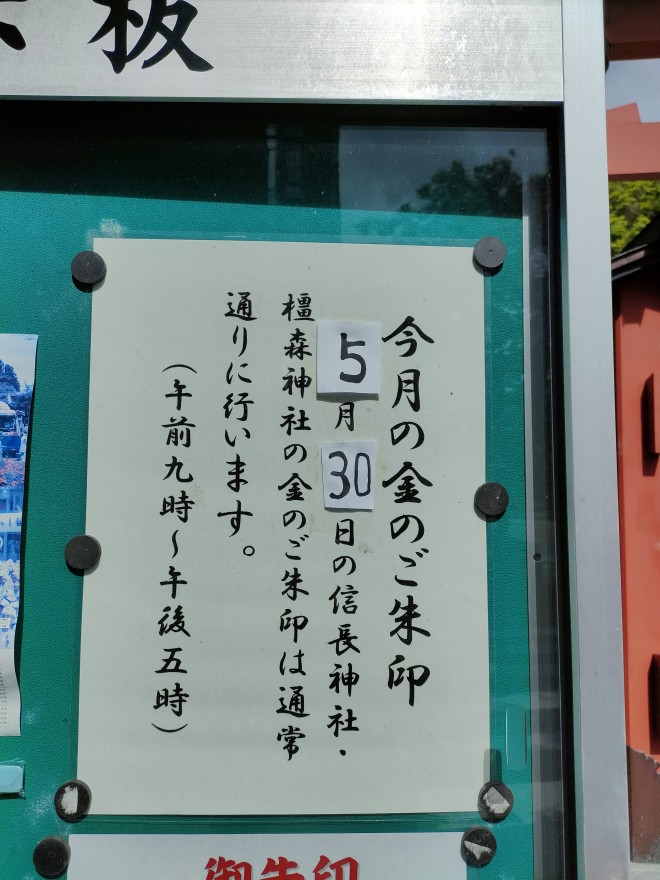 板
今月の金のご朱印
5月30日の信長神社・
橿森神社の金のご朱印は通常
通りに行います。
（午前九時～午後五時）
御朱印